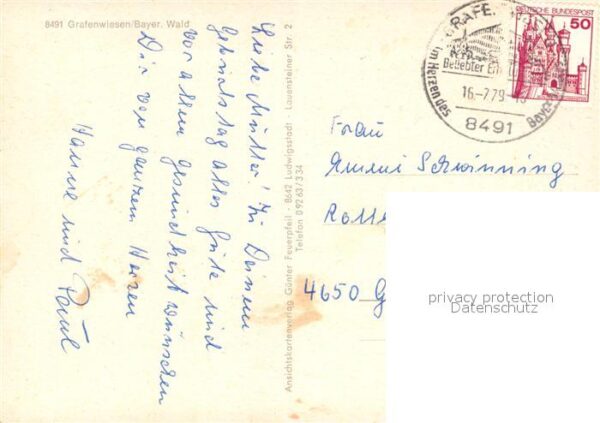 8491 Grafenwiesen/Bayer. Wald
Liebe Mutter! Zu Deinem
Geburtstag alles Gute und
vor allem Gesundheit wünschen
Dir von ganzem Herzen
Hanne und Paul
Ansichtskartenverlag Günter Feuerpfeil · 8642 Ludwigsstadt · Lauensteiner Str. 2
Telefon 09263/334
GRAFE
Beliebter
im Herzen des Bayer
16.-7.79
8491
DEUTSCHE BUNDESPOST
50
Frau
Schwinning
4650 G
privacy protection
Datenschutz